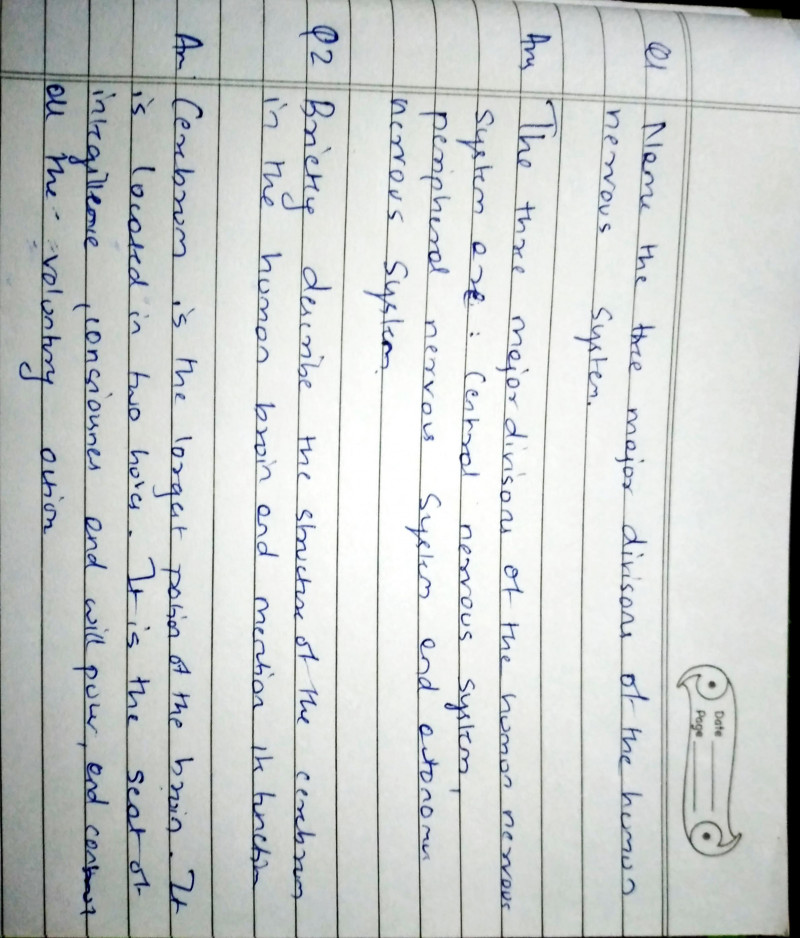 Date
Page
Q1 Name the three major divisons of the human
nervous System.
Ans The three major divisons of the human nervous
System are : Central nervous system,
peripheral nervous System and autonomu
nervous System.
Q2 Briefly describe the structure of the cerebrum
in the human brain and mention its function
An Cerebrum is the largest potion of the brain. It
is located in two halves. It is the seat of
consiousnes and will power, and control
all the voluntary action